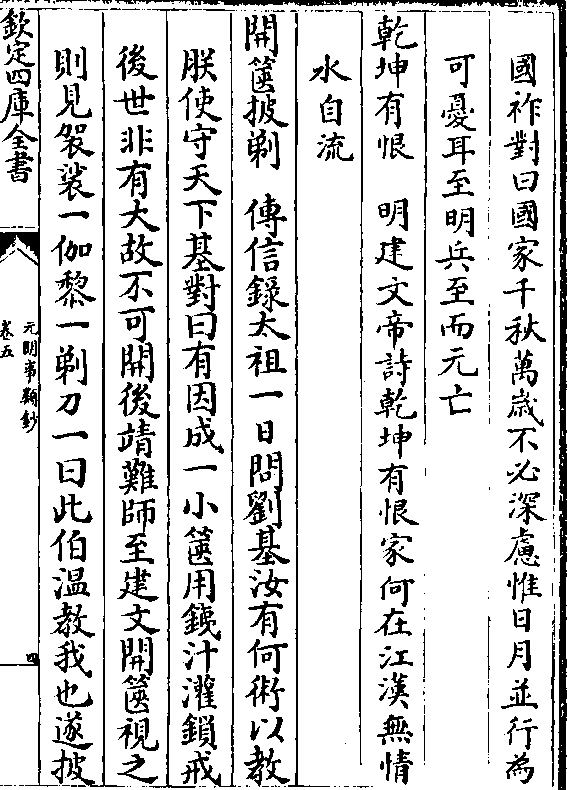 國祚對曰國家千秋萬歲不必深慮惟日月並行為
可憂耳至明兵至而元亡
乾坤有恨　明建文帝詩乾坤有恨家何在江漢無情
水自流
開篋披剃　傳信錄太祖一日問劉基汝有何術以教
朕使守天下基對曰有因成一小篋用鐵汁灌鎖戒
後世非有大故不可開後靖難師至建文開篋視之
則見袈裟一伽黎一剃刀一曰此伯溫教我也遂披
欽定四庫全書
元明事類鈔
卷五
四